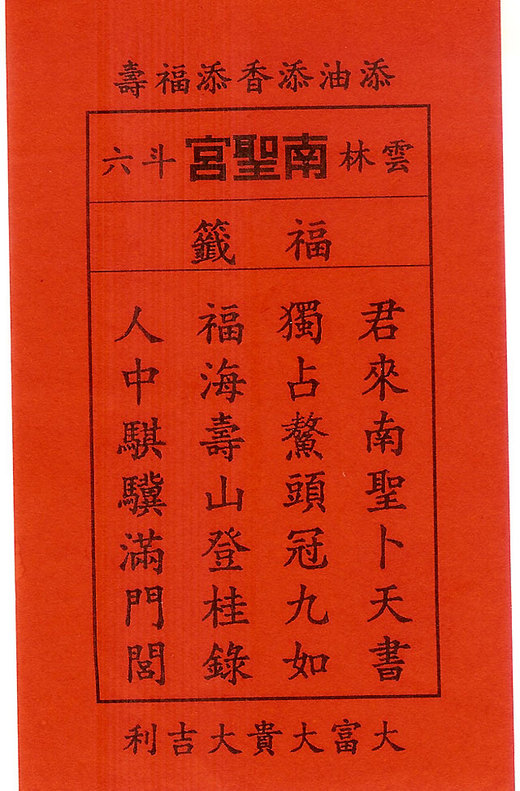 添油添香添福壽
雲林 南聖宮 斗六
福籤
君來南聖卜天書
獨占鰲頭冠九如
福海壽山登桂錄
人中騏驥滿門閭
大富大貴大吉利